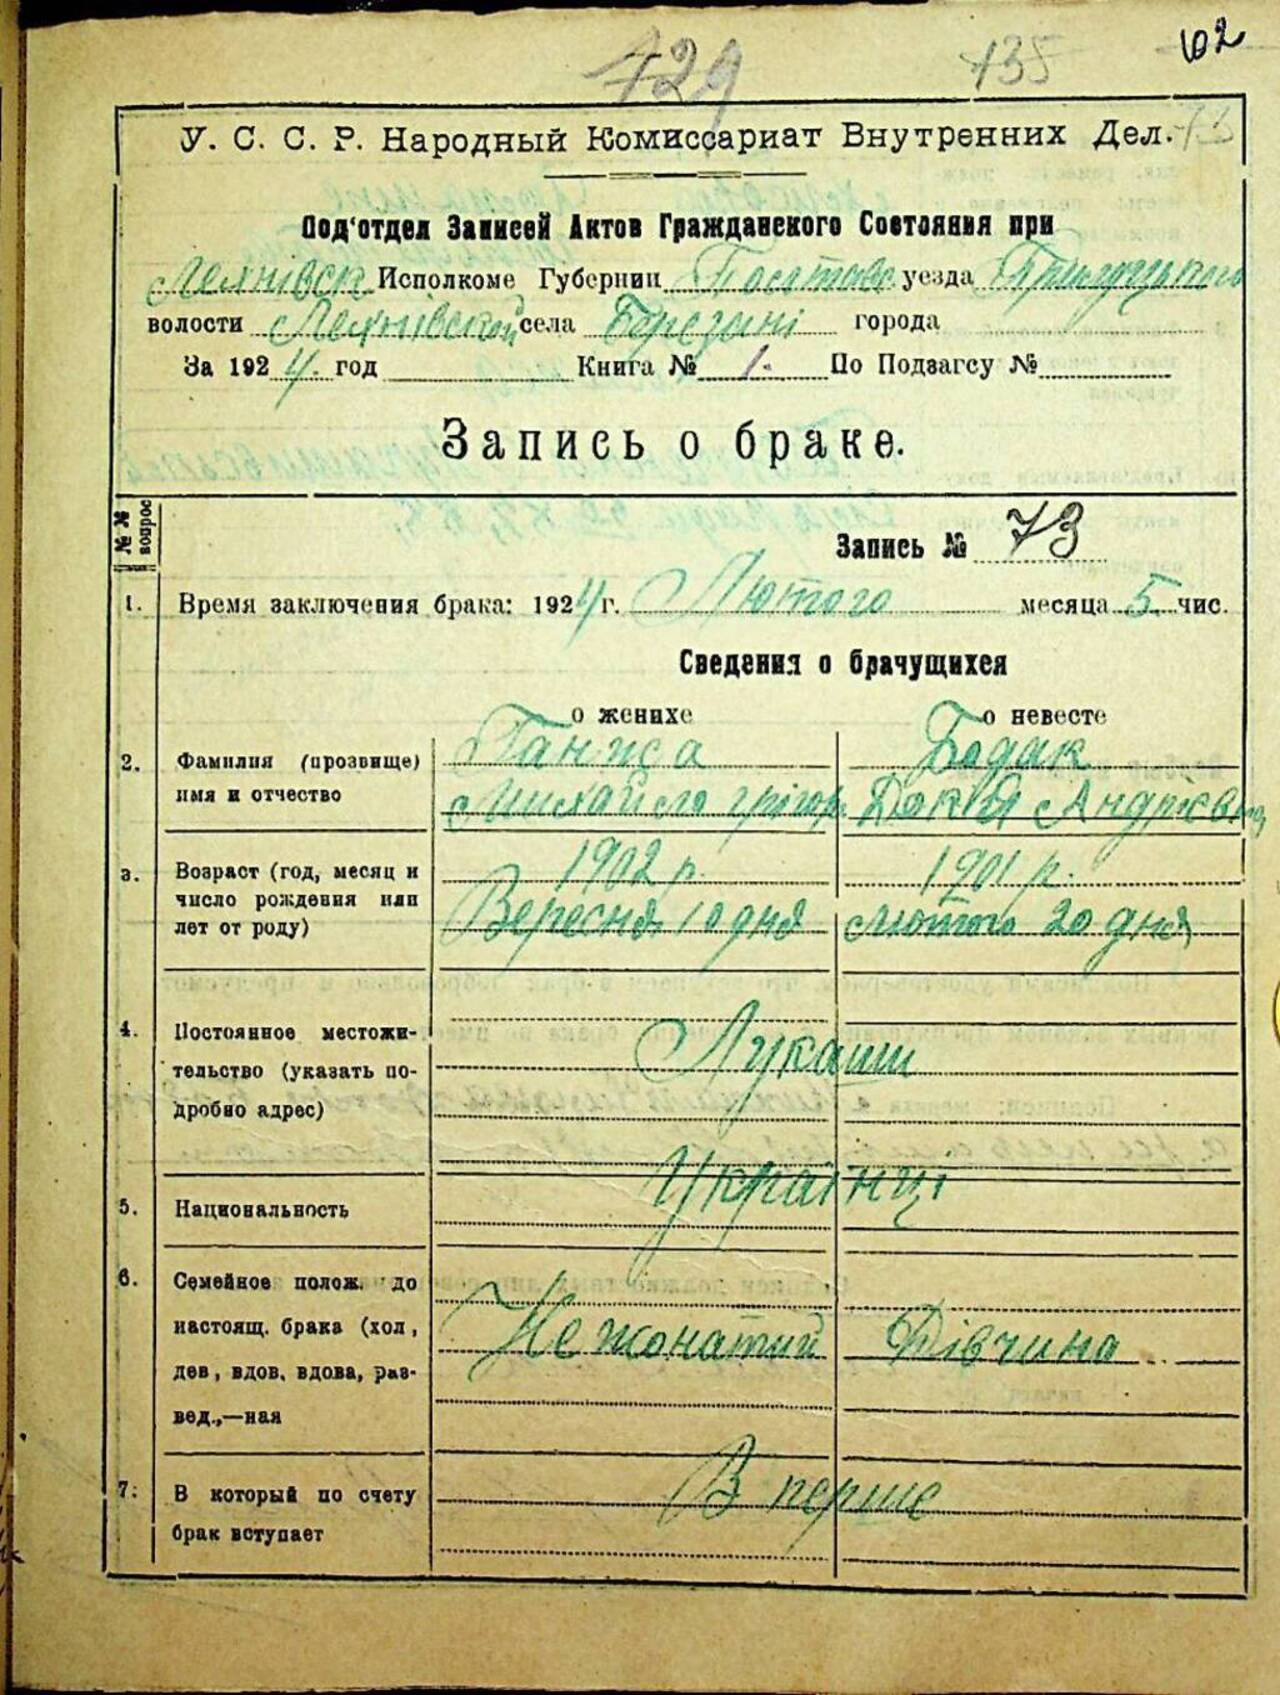 129 135 102
У. С. С. Р. Народный Комиссариат Внутренних Дел.
Под'отдел Записей Актов Гражданского Состояния при
Исполкоме Губернии Полтавс уезда Прилуцького
волости села Березані города
За 1924. год Книга № 1. По Подзагсу №
Запись о браке.
№ № вопрос
Запись № 73
1. Время заключения брака: 1924 г. Лютого месяца 5 чис.
Сведения о брачущихся
о женихе о невесте
2. Фамилия (прозвище) Ганжа Бодак
имя и отчество Михайло Грігор. Докія Андрієвна
3. Возраст (год, месяц и 1902 р. 1901 р.
число рождения или Вересня 10 дня Лютого 20 дня
лет от роду)
4. Постоянное местожи- Лукаши
тельство (указать по-
дробно адрес)
5. Национальность Українці
6. Семейное полож. до
настоящ. брака (хол, Не жонатий Дівчина
дев, вдов, вдова, раз-
вед.,—ная
7. В который по счету В перше
брак вступает